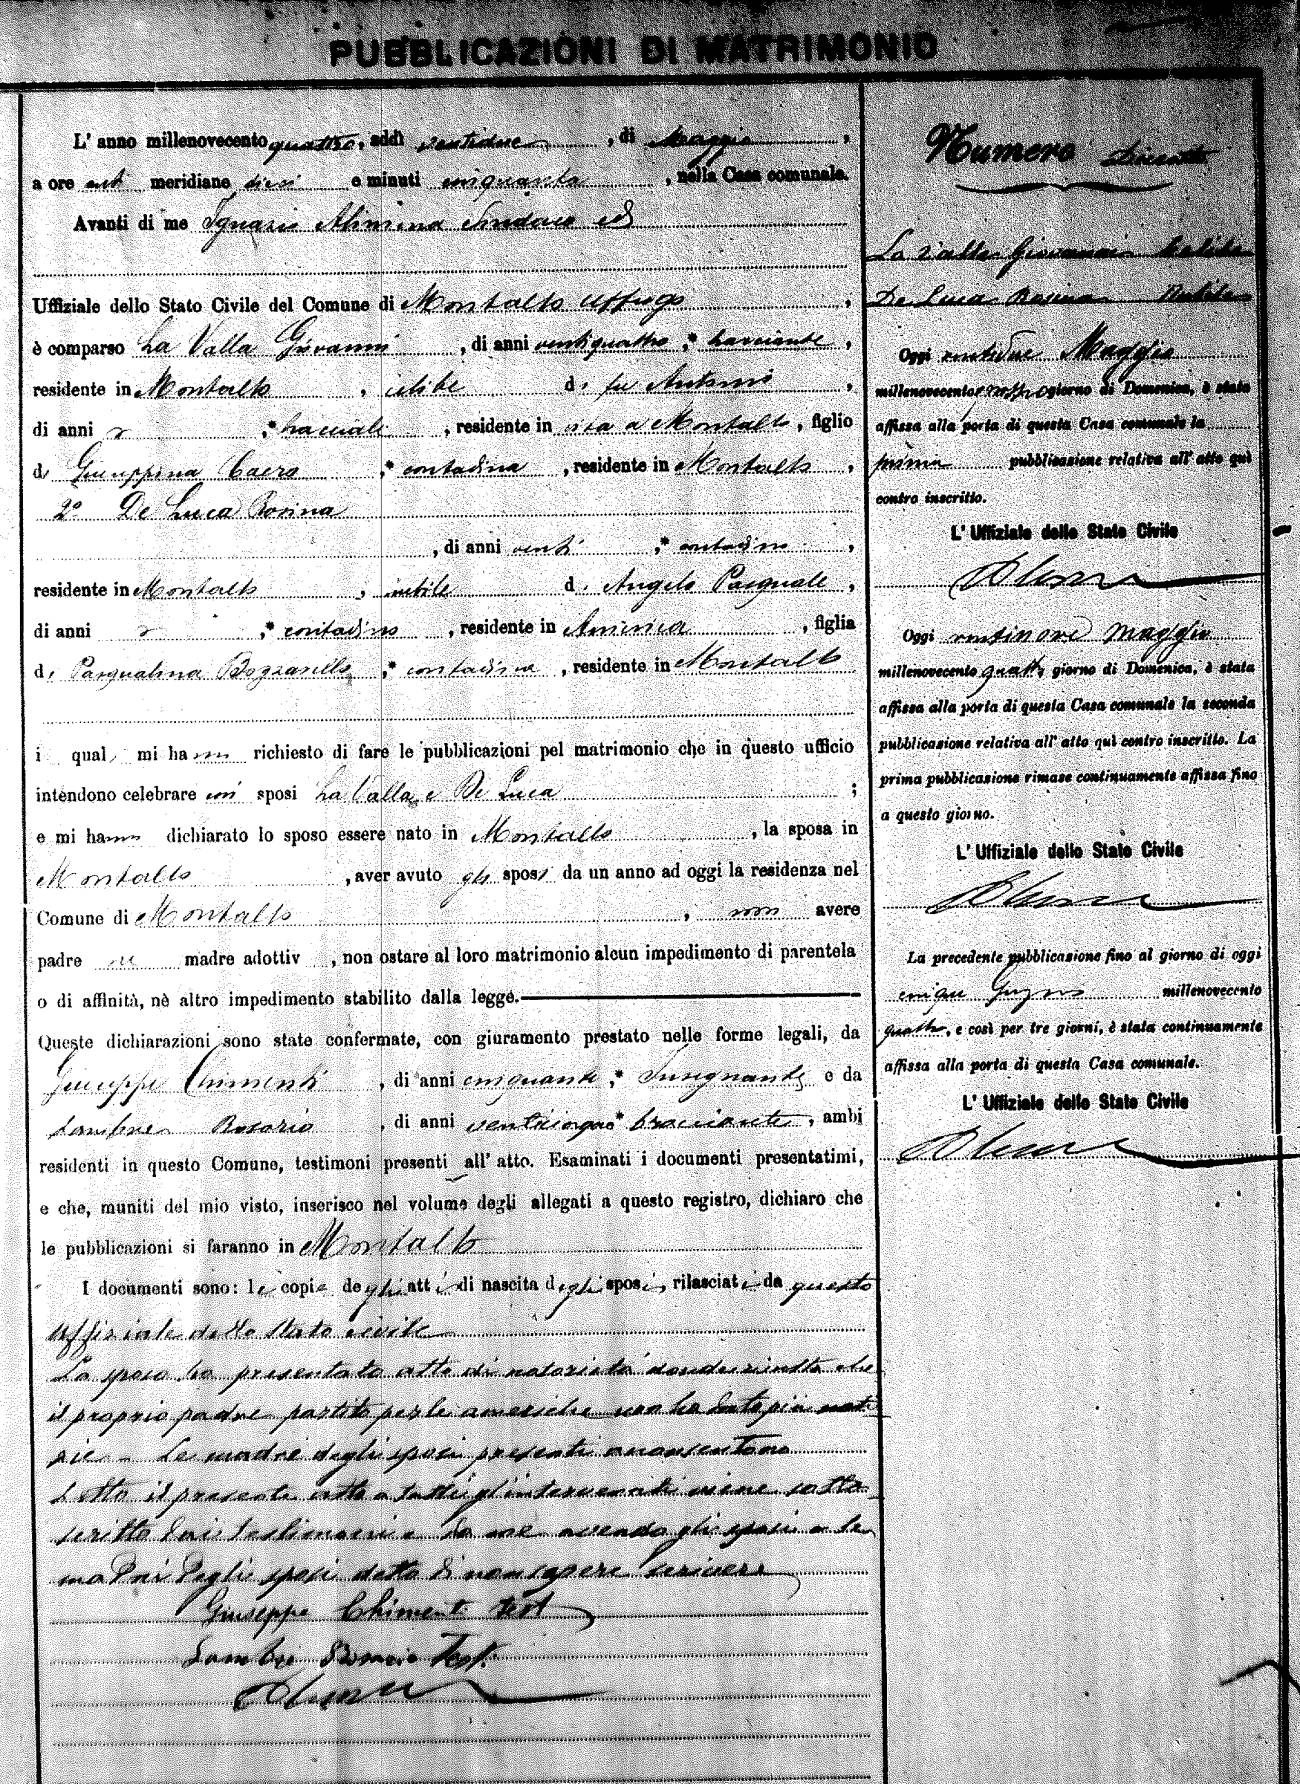 PUBBLICAZIONI DI MATRIMONIO
L' anno millenovecento quattro, addì ventidue, di Maggio,
a ore anti meridiane dieci e minuti cinquanta, nella Casa comunale.
Avanti di me Ignazio Alimena Sindaco ed
Uffiziale dello Stato Civile del Comune di Montalto Uffugo,
è comparso La Valla Giovanni, di anni ventiquattro,* bracciante,
residente in Montalto, celibe di fu Antonio,
di anni,* , residente in vita a Montalto, figlio
di Giuseppina,* contadina, residente in Montalto,
2° De Luca Rosina
, di anni venti,* contadina,
residente in Montalto, nubile di Angelo Pasquale,
di anni,* contadino, residente in America, figlia
di Pasqualina,* contadina, residente in Montalto
i quali mi hanno richiesto di fare le pubblicazioni pel matrimonio che in questo ufficio
intendono celebrare essi sposi La Valla e De Luca;
e mi hanno dichiarato lo sposo essere nato in Montalto, la sposa in
Montalto, aver avuto gli sposi da un anno ad oggi la residenza nel
Comune di Montalto, non avere
padre ne madre adottiv, non ostare al loro matrimonio alcun impedimento di parentela
o di affinità, nè altro impedimento stabilito dalla legge.
Queste dichiarazioni sono state confermate, con giuramento prestato nelle forme legali, da
Giuseppe Chimenti, di anni cinquanta,* Insegnante e da
Rosario, di anni venticinque* bracciante, ambi
residenti in questo Comune, testimoni presenti all' atto. Esaminati i documenti presentatimi,
e che, muniti del mio visto, inserisco nel volume degli allegati a questo registro, dichiaro che
le pubblicazioni si faranno in Montalto
I documenti sono: le copie degli atti di nascita degli sposi, rilasciate da questo
Uffiziale dello Stato civile
La sposa ha presentato atto di notorietà che
il proprio padre partito per le americhe non ha dato più noti
zie. Le madri degli sposi presenti acconsentono
Letto il presente atto a tutti gl'intervenuti viene sotto
scritto dai testimoni e da me avendo gli sposi e le
madri degli sposi detto di non sapere scrivere
Giuseppe Chimenti test
Test.
Numero
La Valla Giovanni Celibe
De Luca Rosina Nubile
Oggi ventidue Maggio
millenovecento quattro giorno di Domenica, è stata
affissa alla porta di questa Casa comunale la
prima pubblicazione relativa all' atto quì
contro inscritto.
L' Uffiziale dello Stato Civile
Oggi ventinove Maggio
millenovecento quattro giorno di Domenica, è stata
affissa alla porta di questa Casa comunale la seconda
pubblicazione relativa all' atto quì contro inscritto. La
prima pubblicazione rimase continuamente affissa fino
a questo giorno.
L' Uffiziale dello Stato Civile
La precedente pubblicazione fino al giorno di oggi
cinque Giugno millenovecento
quattro, e così per tre giorni, è stata continuamente
affissa alla porta di questa Casa comunale.
L' Uffiziale dello Stato Civile